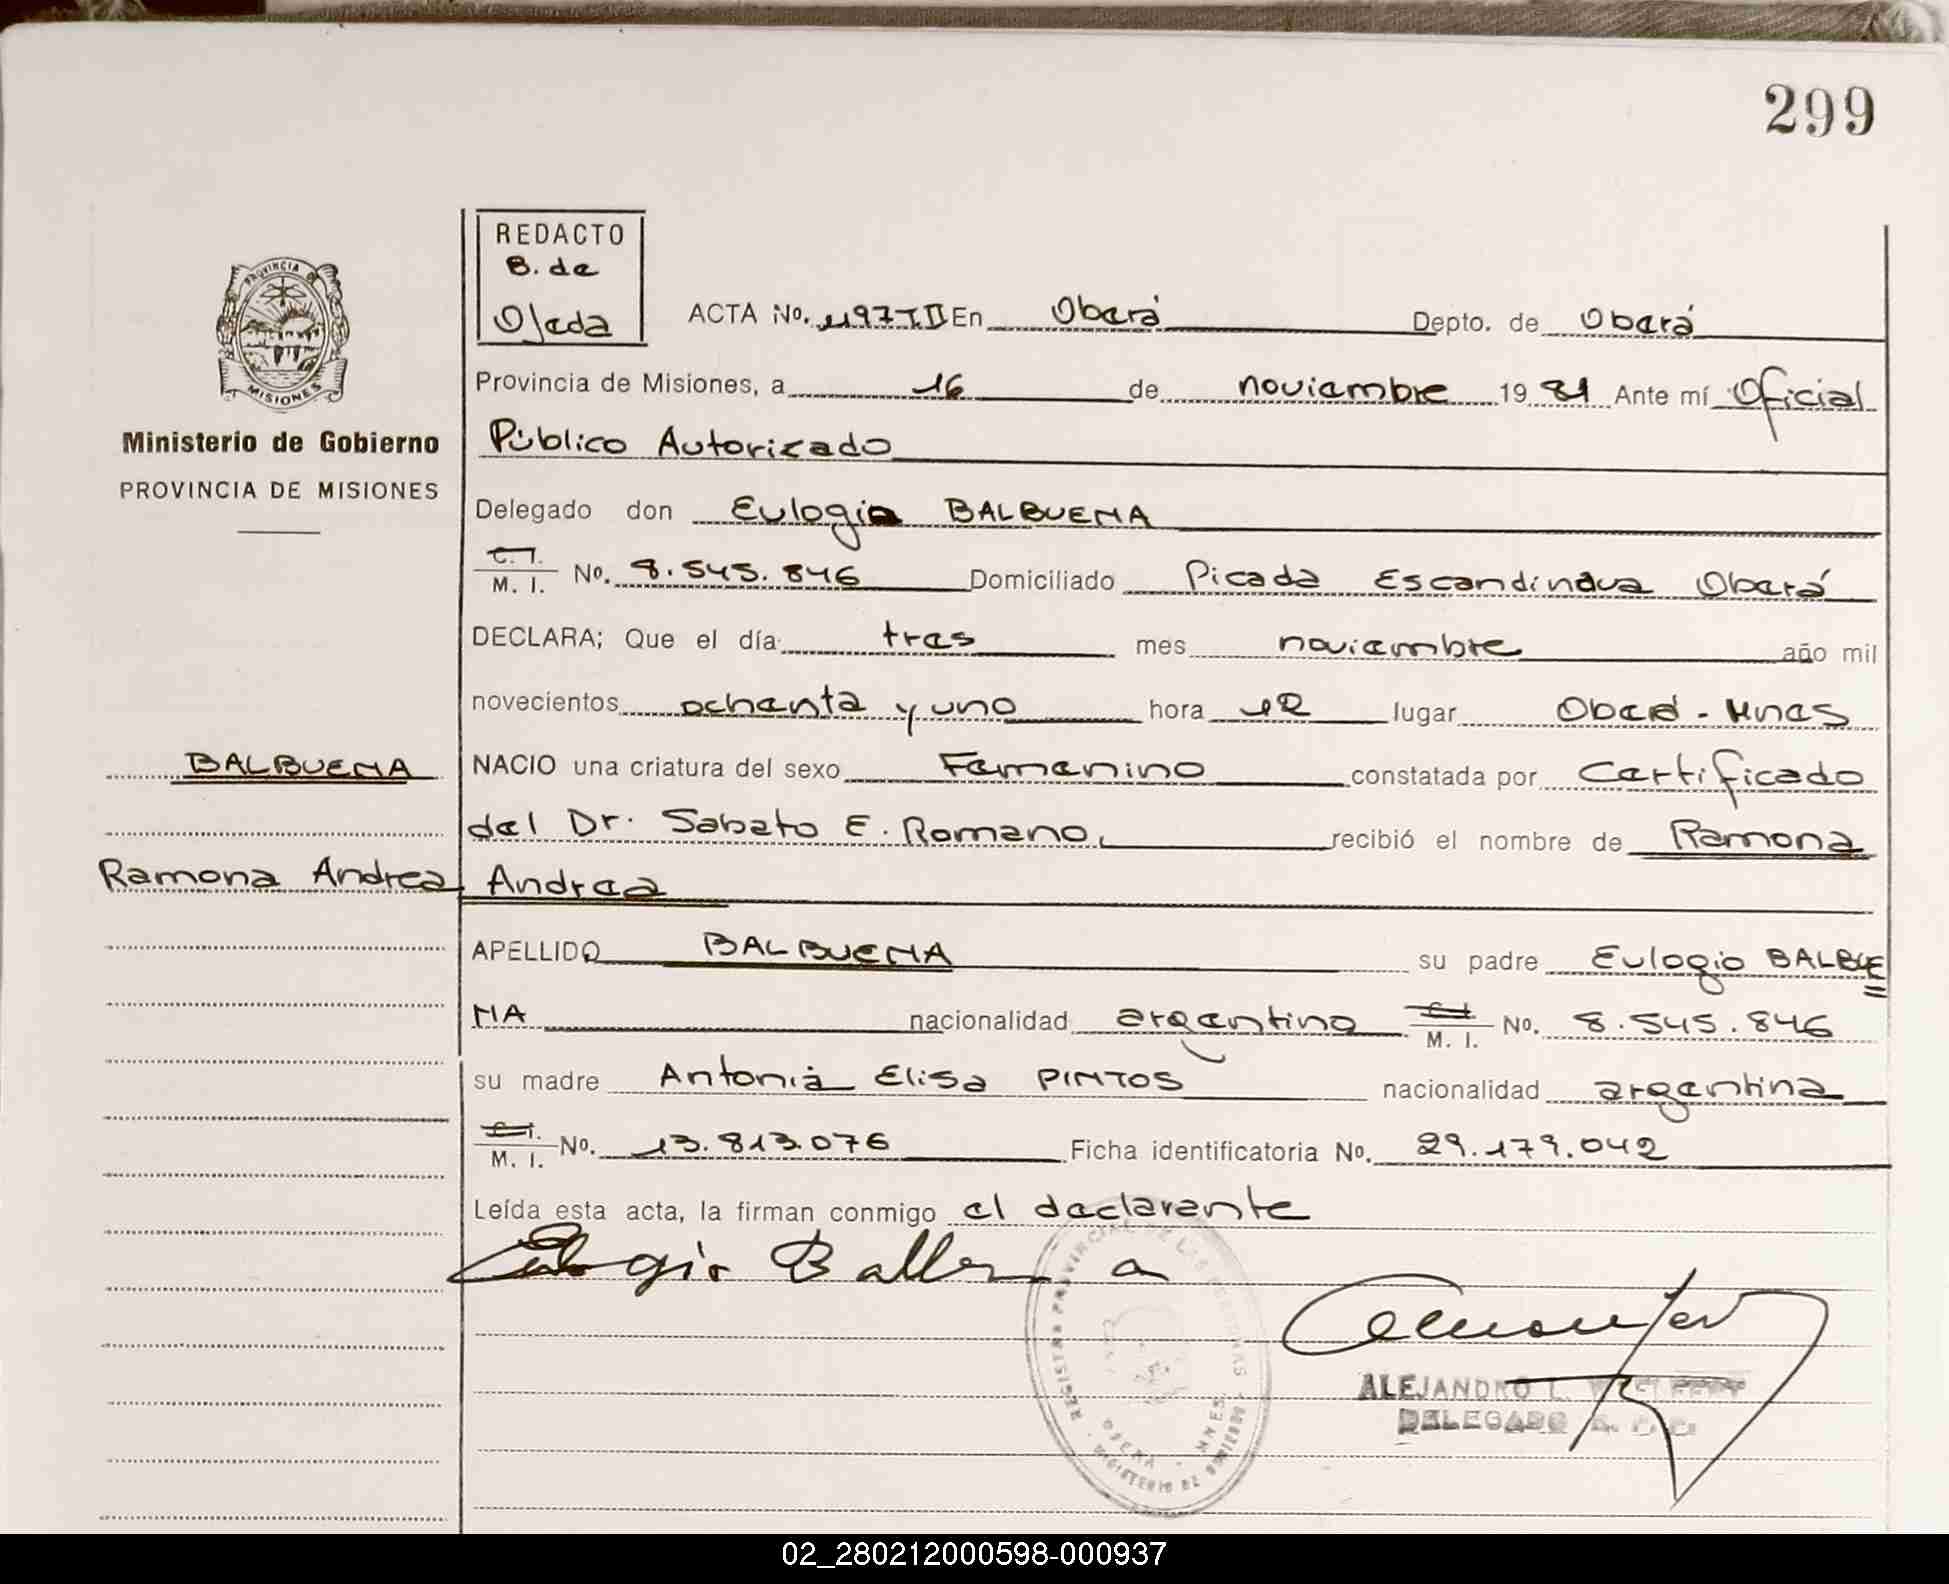 299
REDACTO
B. de
Ojeda
ACTA No. 1197 T II En Oberá Depto. de Oberá
Provincia de Misiones, a 16 de noviembre 19 81 Ante mí Oficial
Público Autorizado
PROVINCIA DE
MISIONES
Ministerio de Gobierno
PROVINCIA DE MISIONES
Delegado don Eulogio BALBUENA
C. I.
M. I. No. 8.545.846 Domiciliado Picada Escandinava Oberá
DECLARA; Que el día tres mes noviembre año mil
novecientos ochenta y uno hora 12 lugar Oberá - Mnes
BALBUENA
NACIO una criatura del sexo Femenino constatada por Certificado
del Dr. Sabato E. Romano, recibió el nombre de Ramona
Ramona Andrea
Andrea
APELLIDO BALBUENA su padre Eulogio BALBUE
NA nacionalidad argentino C. I.
M. I. No. 8.545.846
su madre Antonia Elisa PINTOS nacionalidad argentina
C. I.
M. I. No. 13.813.076 Ficha identificatoria No. 29.179.042
Leída esta acta, la firman conmigo el declarante
Eulogio Balbuena
REGISTRO PROVINCIAL DE LAS PERSONAS
OBERA - MNES.
ALEJANDRO L.
DELEGADO
02_280212000598-000937